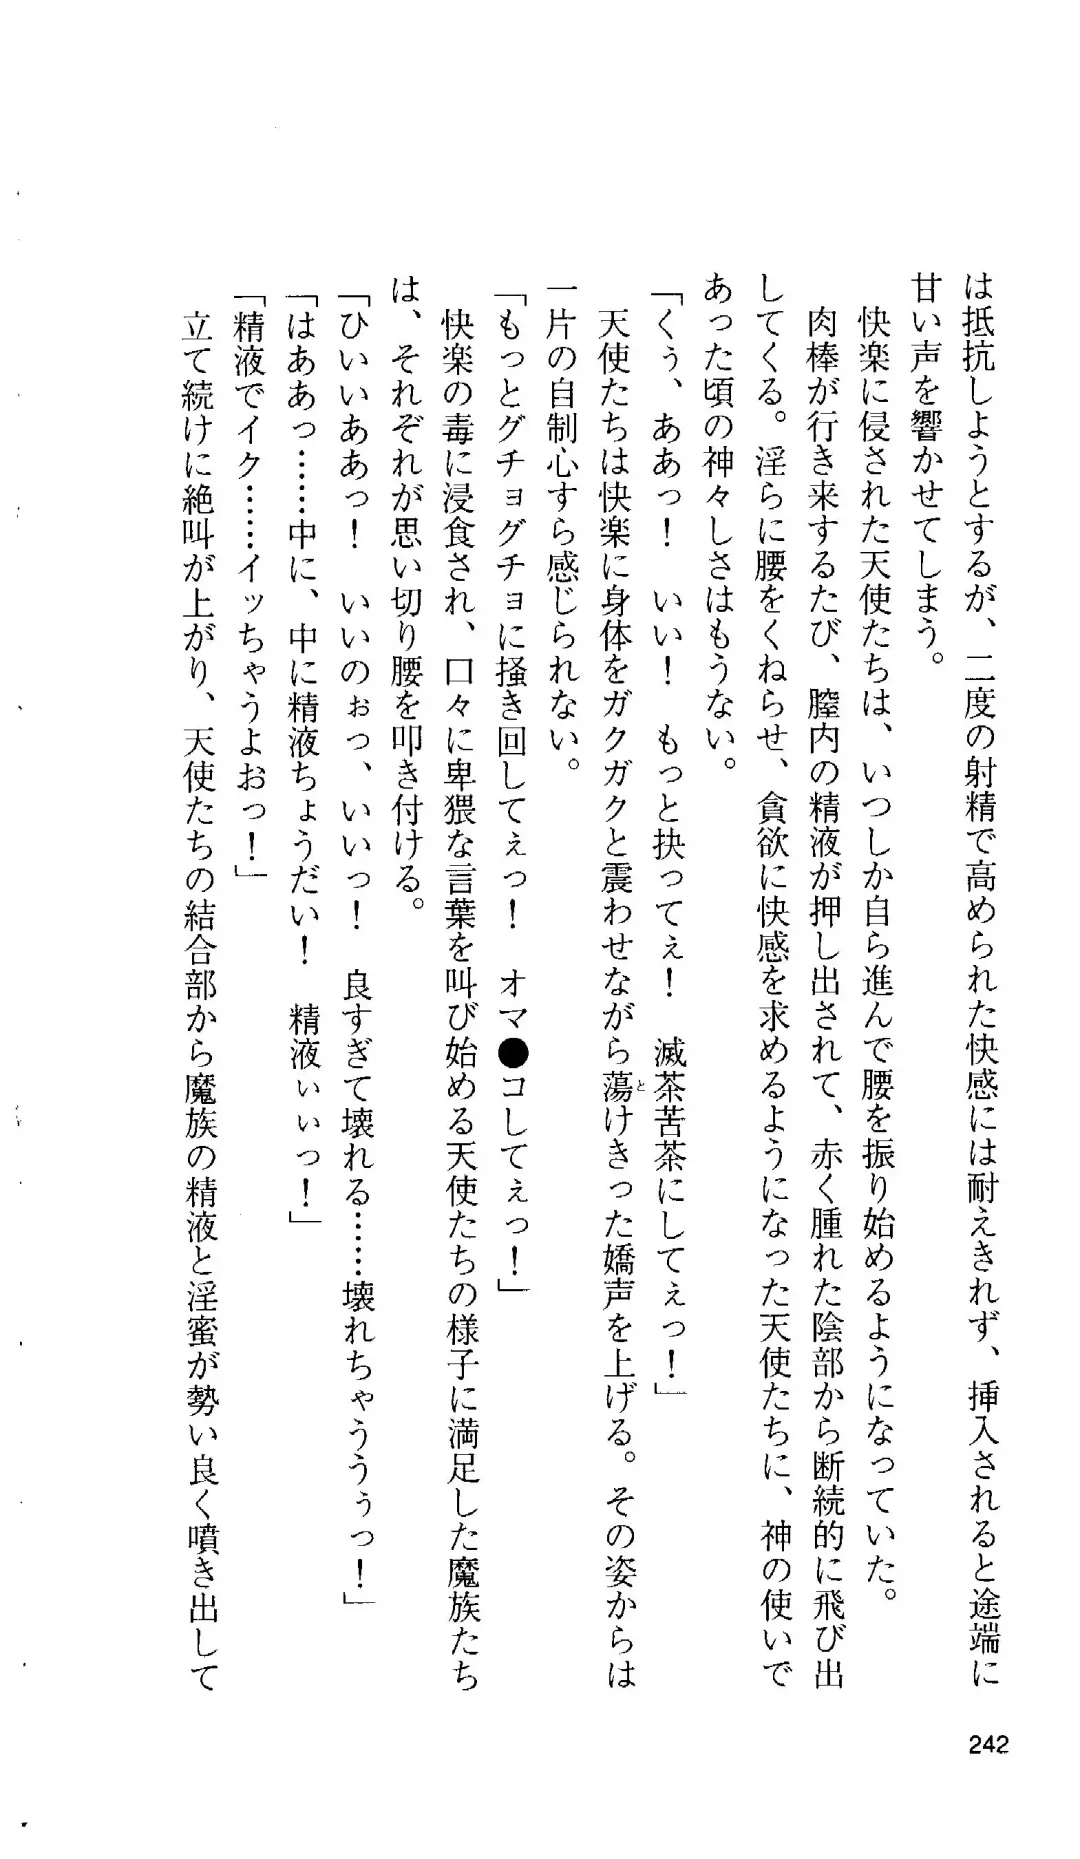 は抵抗しようとするが、二度の射精で高められた快感には耐えきれず、挿入されると途端に
甘い声を響かせてしまう。
快楽に侵された天使たちは、いつしか自ら進んで腰を振り始めるようになっていた。
肉棒が行き来するたび、膣内の精液が押し出されて、赤く腫れた陰部から断続的に飛び出
してくる。淫らに腰をくねらせ、貪欲に快感を求めるようになった天使たちに、神の使いで
あった頃の神々しさはもうない。
「くぅ、ああっ！　いい！　もっと抉ってぇ！　滅茶苦茶にしてぇっ！」
天使たちは快楽に身体をガクガクと震わせながら蕩けきった嬌声を上げる。その姿からは
と
一片の自制心すら感じられない。
「もっとグチョグチョに掻き回してぇっ！　オマ●コしてぇっ！」
快楽の毒に浸食され、口々に卑猥な言葉を叫び始める天使たちの様子に満足した魔族たち
は、それぞれが思い切り腰を叩き付ける。
「ひいいああっ！　いいのぉっ、いいっ！　良すぎて壊れる……壊れちゃううぅっ！」
「はああっ……中に、中に精液ちょうだい！　精液ぃぃっ！」
「精液でイク……イッちゃうよおっ！」
立て続けに絶叫が上がり、天使たちの結合部から魔族の精液と淫蜜が勢い良く噴き出して
242